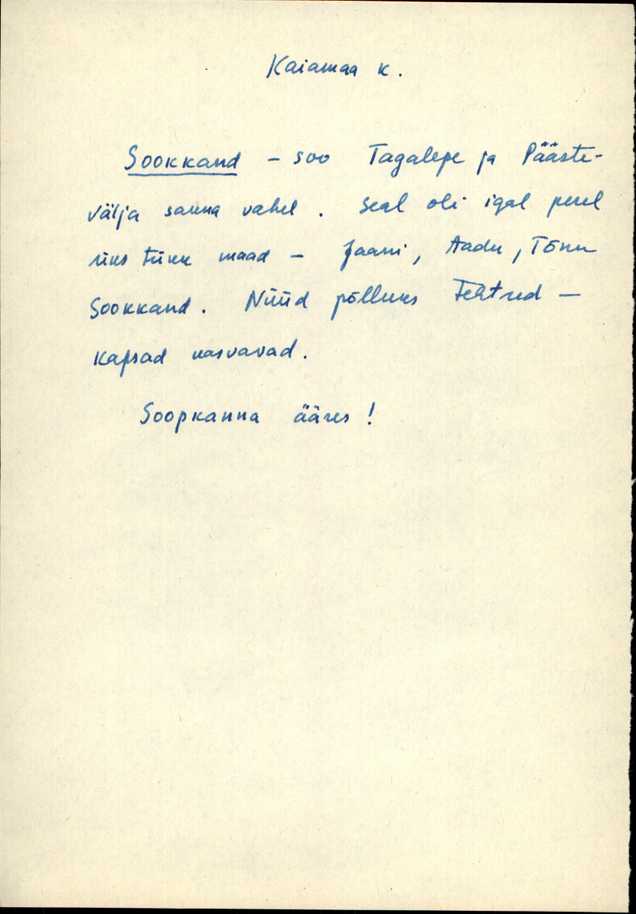 Kaiamaa k.
Sookkand - soo Tagalepe ja Pääste-
välja sauna vahel. Seal oli igal perel
üks tükk maad - Jaani, Aadu, Tõnu
Sookkand. Nüüd põlluks tehtud -
kapsad kasvavad.
Soopkanna ääres!